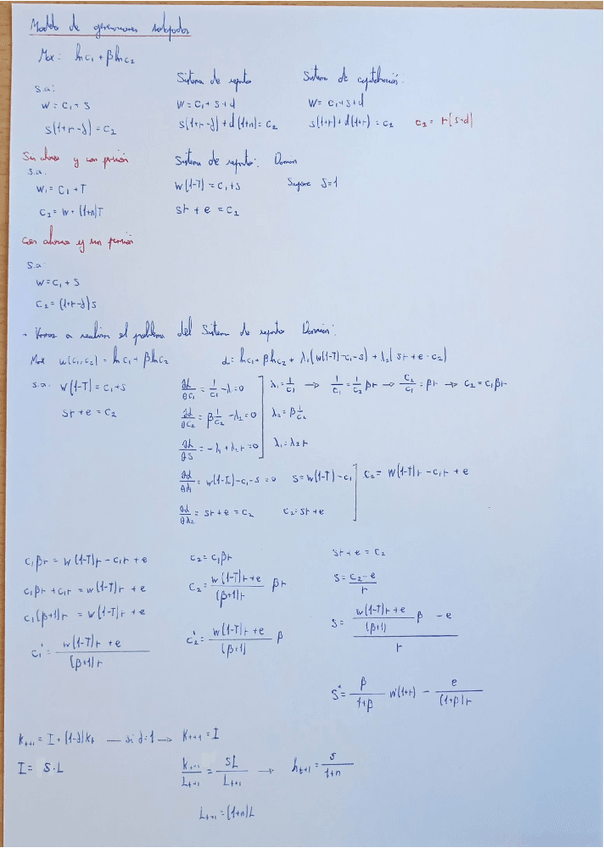 Modelo de generaciones solapadas
Max: ln c₁ + β ln c₂
s.a:
w = c₁ + s
s(1+r-δ) = c₂
Sistema de reparto
w = c₁ + s + d
s(1+r-δ) + d(1+n) = c₂
Sistema de capitalización:
w = c₁ + s + d
s(1+r) + d(1+r) = c₂ c₂ = r[s+d]
Sin ahorro y con pensión
s.a.
w₁ = c₁ + T
c₂ = w · (1+n)T
Sistema de reparto: Damon
w(1-T) = c₁ + s Supone δ=1
sr + e = c₂
Con ahorro y sin pensión
s.a:
w = c₁ + s
c₂ = (1+r-δ)s
- Vamos a resolver el problema del Sistema de reparto Damon:
Max u(c₁,c₂) = ln c₁ + β ln c₂
s.a: w(1-T) = c₁ + s
sr + e = c₂
L = ln c₁ + β ln c₂ + λ₁(w(1-T)-c₁-s) + λ₂(sr + e - c₂)
∂L/∂c₁ = 1/c₁ - λ₁ = 0 λ₁ = 1/c₁ → 1/c₁ = 1/c₂ βr → c₂/c₁ = βr → c₂ = c₁βr
∂L/∂c₂ = β 1/c₂ - λ₂ = 0 λ₂ = β 1/c₂
∂L/∂s = -λ₁ + λ₂ r = 0 λ₁ = λ₂ r
∂L/∂λ₁ = w(1-T) - c₁ - s = 0 s = w(1-T) - c₁ c₂ = w(1-T)r - c₁r + e
∂L/∂λ₂ = sr + e = c₂ c₂ = sr + e
c₁βr = w(1-T)r - c₁r + e
c₁βr + c₁r = w(1-T)r + e
c₁(β+1)r = w(1-T)r + e
c₁* = (w(1-T)r + e)/((β+1)r)
c₂ = c₁βr
c₂ = (w(1-T)r + e)/((β+1)r) βr
c₂* = (w(1-T)r + e)/(β+1) β
sr + e = c₂
s = (c₂ - e)/r
s = ((w(1-T)r + e)/(β+1) β - e)/r
s* = β/(1+β) w(1+r) - e/((1+β)r)
Kₜ₊₁ = I + (1-δ)Kₜ — si δ=1 → Kₜ₊₁ = I
I = s · L
Kₜ₊₁/Lₜ₊₁ = sL/Lₜ₊₁ → kₜ₊₁ = s/(1+n)
Lₜ₊₁ = (1+n)L